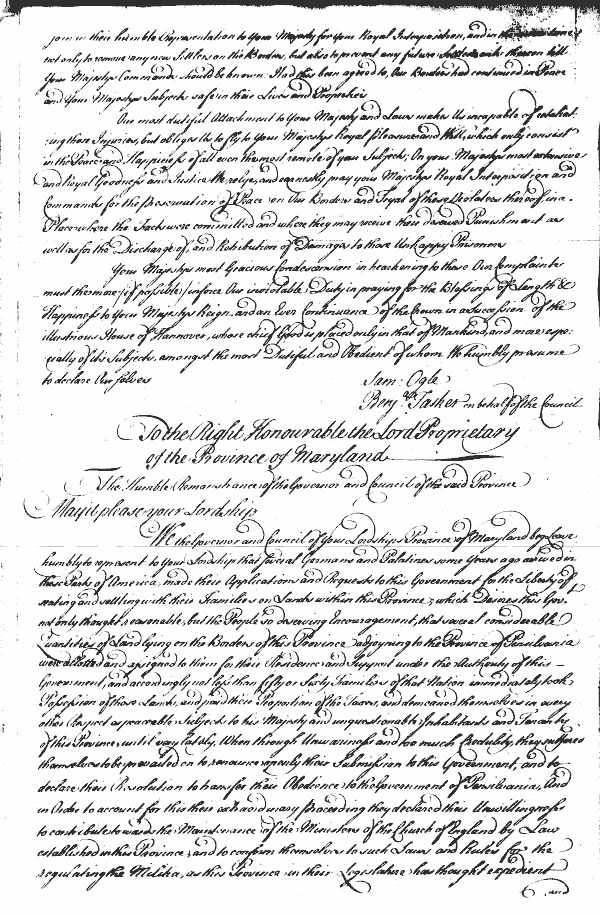 join in their humble Representation to Your Majesty for Your Royal Interposition, and in the
not only to remove any new Settlers on the Borders, but also to prevent any future Settlements thereon till
Your Majestys Commands should be known. Had this been agreed to, Our Borders had continued in Peace
and Your Majestys Subjects safe in their Lives and Properties
Our most dutifull Attachment to Your Majesty and Laws makes Us incapable of retaliat:
ing those Injuries, but obliges Us to fly to Your Majestys Royal Pleasure and Will, which only consist
in the Peace and Happiness of all even the most remote of your Subjects; On your Majestys most extensive
and Royal Goodness and Justice We relye, and earnestly pray your Majestys Royal Interposition and
Commands for the Preservation of Peace on Our Borders and Tryal of these Violators thereof in a
Place where the Facts were committed and where they may receive their deserved Punishment as
well as for the Discharge of, and Retribution of Damages to those Unhappy Prisoners
Your Majestys most Gracious Condescension in hearkening to these Our Complaints
must the more (if possible) inforce Our inviolable Duty in praying for the Blessings of Length &
Happiness to Your Majestys Reign and an Ever Continuance of the Crown in a Succession of the
illustrious House of Hannover, whose chief Good is placed only in that of Mankind, and more espe:
cially of its Subjects, amongst the most Dutiful and Obedient of whom We humbly presume
to declare Our selves
Sam: Ogle
Benja Tasker on behalf of the Council
To the Right Honourable the Lord Proprietary
of the Province of Maryland
The Humble Remonstrance of the Governor and Council of the said Province
May it please your Lordship
We the Governor and Council of Your Lordships Province of Maryland beg leave
humbly to represent to Your Lordship that several Germans and Palatines some Years ago arrived in
these Parts of America, made their Applications and Requests to this Government for the Liberty of
seating and settling with their Families on Lands within this Province, which Desires this Gov:
not only thought reasonable, but the People so deserving Encouragement, that several considerable
Quantities of Land lying on the Borders of this Province adjoyning to the Province of Pensilvania
were allotted and assigned to them for their Residence and Support under the Authority of this
Government, and accordingly not less than fifty or Sixty Families of that Nation immediately took
Possession of those Lands, and paid their Proportion of the Taxes, and demeaned themselves in every
other Respect as peaceable Subjects to his Majesty and unquestionable Inhabitants and Tenants
of this Province, until very lately, When through Unwariness and too much Credulity, they suffered
themselves to be prevailed on to renounce openly their Submission to this Government, and to
declare their Resolution to transfer their Obedience to the Government of Pensilvania, And
in Order to account for this their extraordinary Proceeding they declared their Unwillingness
to contribute towards the Maintenance of the Ministers of the Church of England by Law
established in this Province, and to conform themselves to such Laws and Rules for the
regulating the Militia, as this Province in their Legislature has thought expedient
and